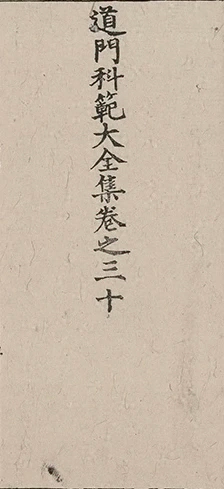 道門科範大全集卷之三十